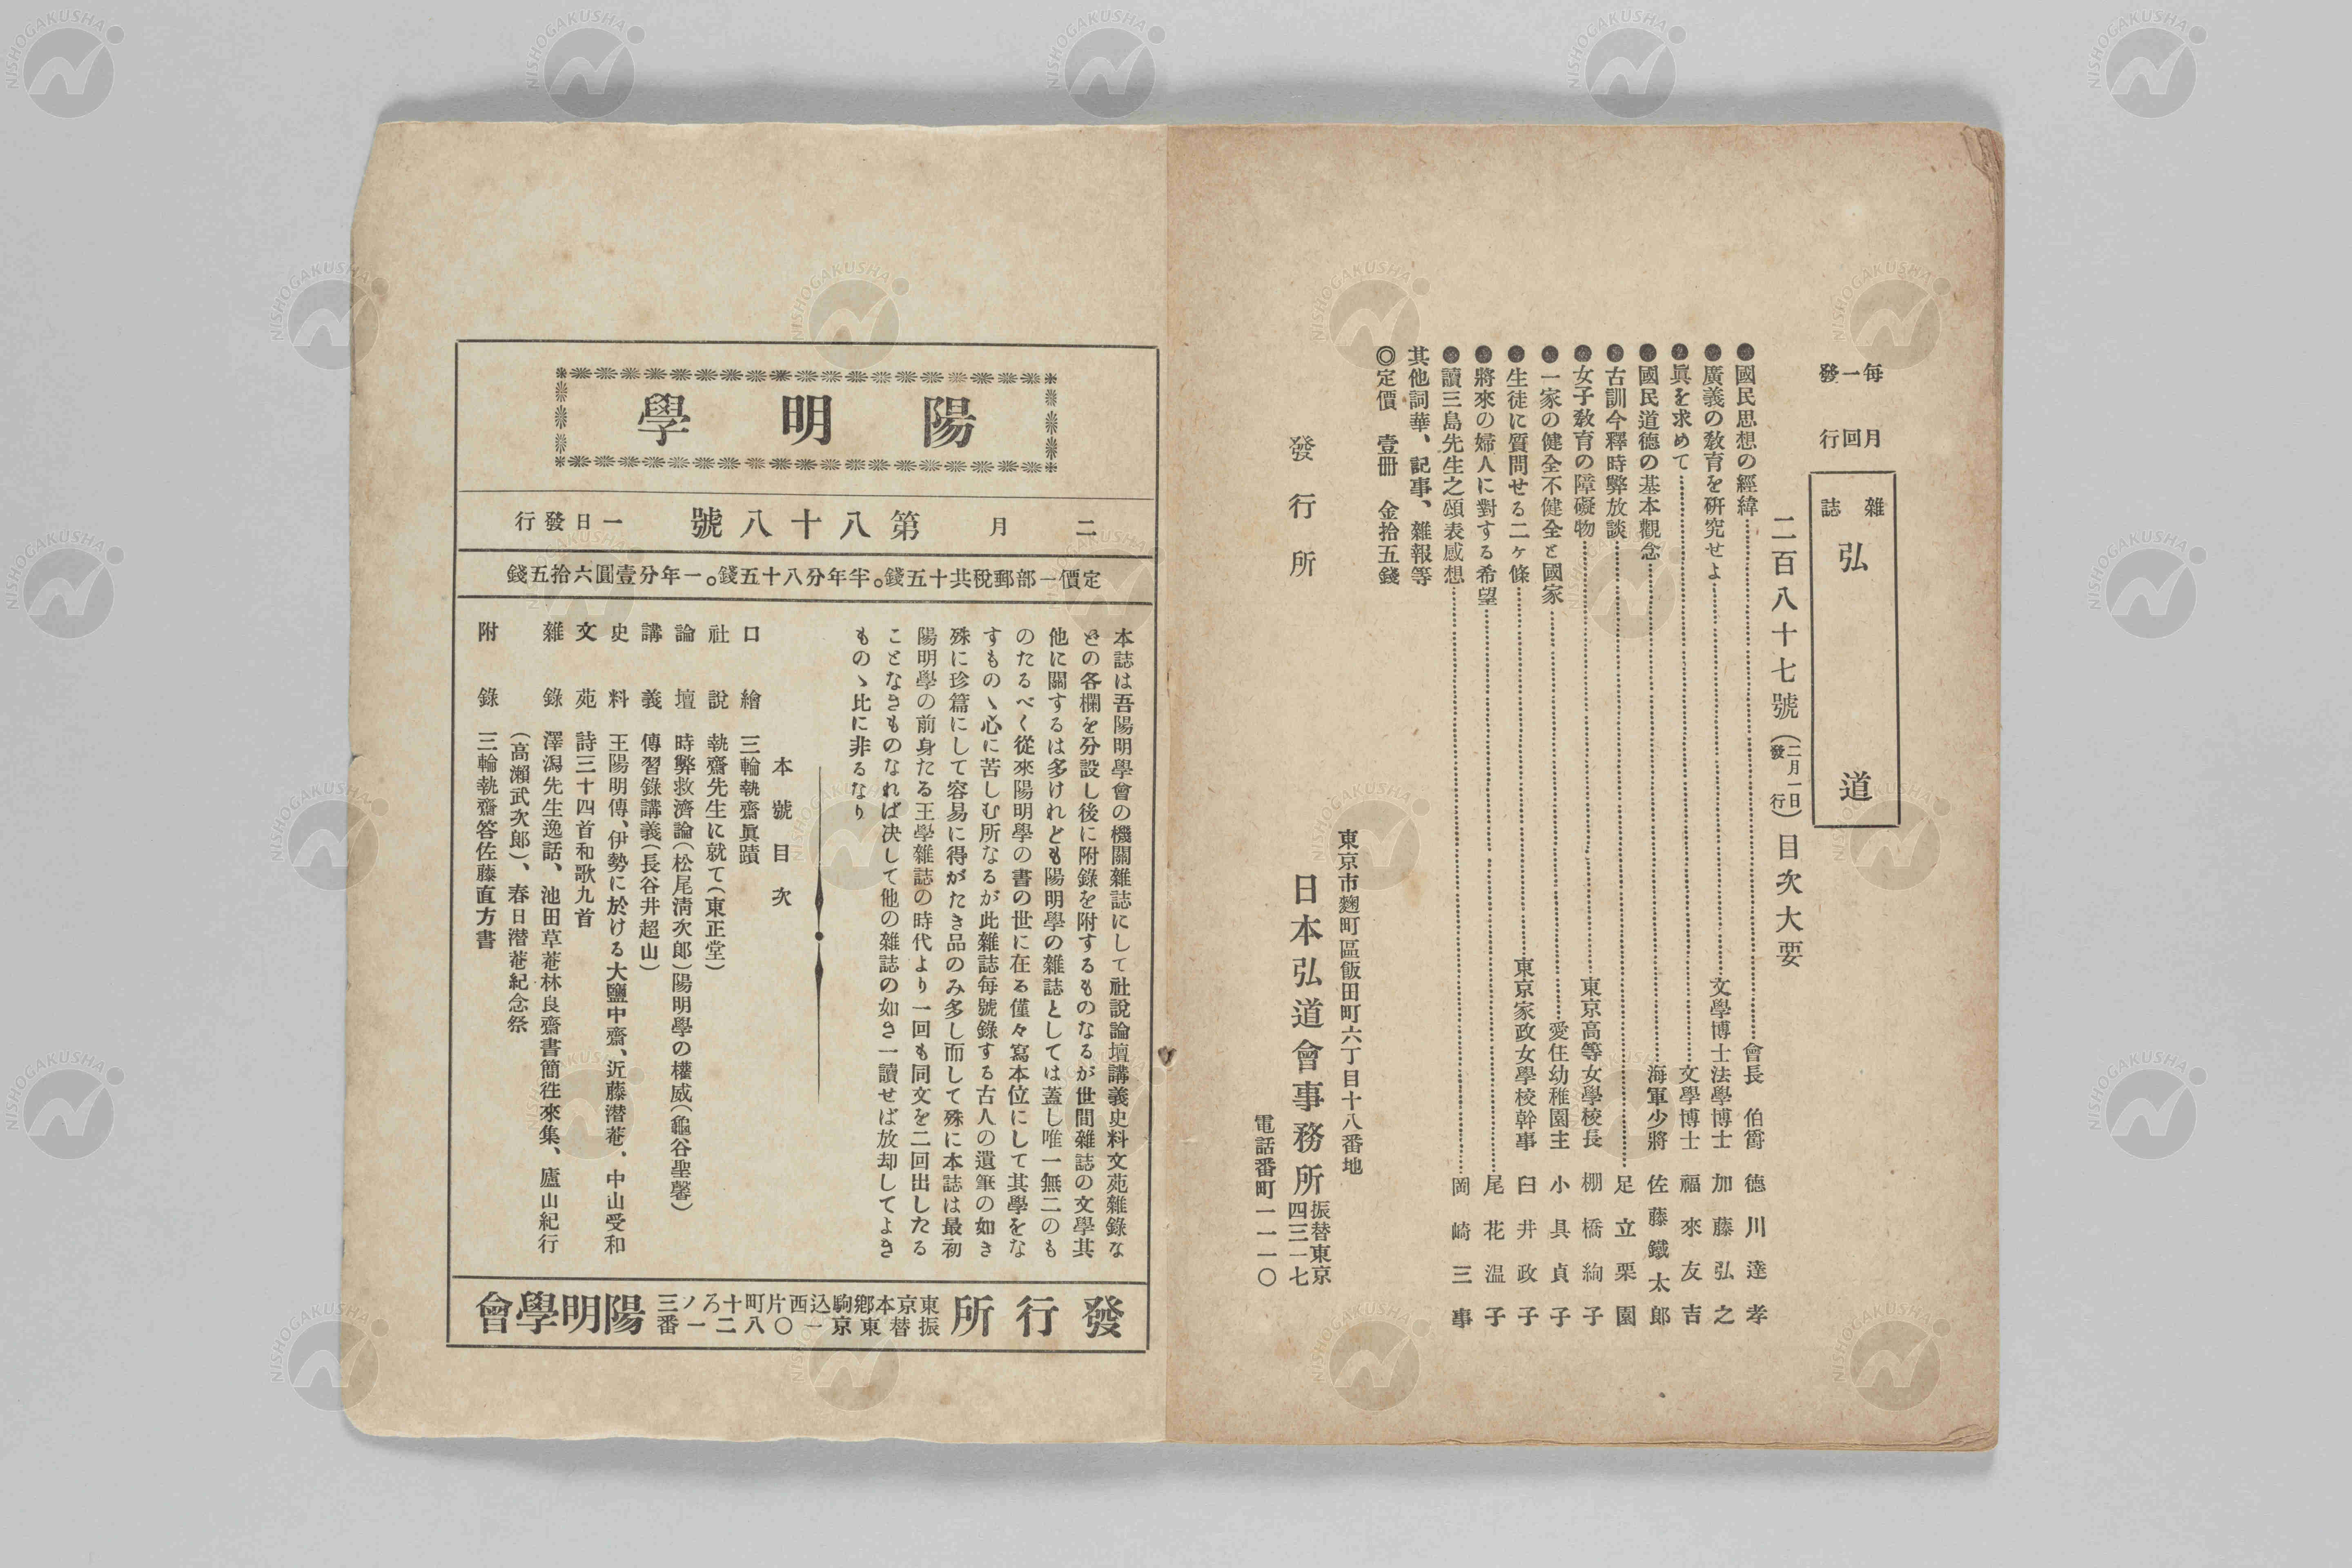 毎月一回發行
雜誌 弘道
二百八十七號（二月一日發行）目次大要
●國民思想の經緯……會長 伯爵 德川達孝
●廣義の敎育を硏究せよ……文學博士法學博士 加藤弘之
●眞を求めて……文學博士 福來友吉
●國民道德の基本觀念……海軍少將 佐藤鐵太郎
●古訓今釋時弊放談……足立栗園
●女子敎育の障礙物……東京高等女學校長 棚橋絢子
●一家の健全不健全と國家……愛住幼稚園主 小具貞子
●生徒に質問せる二ヶ條……東京家政女學校幹事 臼井政子
●將來の婦人に對する希望……尾花温子
●讀三島先生之頌表感想……岡崎三事
其他詞華、記事、雜報等
◎定價 壹册 金拾五錢
發行所
東京市麴町區飯田町六丁目十八番地
日本弘道會事務所
振替東京四三一七
電話番町一一一〇
陽明學
二月 第八十八號 一日發行
定價一部郵稅共十五錢。半年分八十五錢。一年分壹圓六拾五錢
本誌は吾陽明學會の機關雜誌にして社說論壇講義史料文苑雜錄な
どの各欄を分設し後に附錄を附するものなるが世間雜誌の文學其
他に關するは多けれども陽明學の雜誌としては蓋し唯一無二のも
のたるべく從來陽明學の書の世に在る僅々寫本位にして其學をな
すものゝ心に苦しむ所なるが此雜誌每號錄する古人の遺筆の如き
殊に珍篇にして容易に得がたき品のみ多し而して殊に本誌は最初
陽明學の前身たる王學雜誌の時代より一回も同文を二回出したる
ことなきものなれば决して他の雜誌の如き一讀せば放却してよき
ものゝ比に非るなり
本號目次
口繪 三輪執齋眞蹟
社說 執齋先生に就て（東正堂）
論壇 時弊救濟論（松尾淸次郎）陽明學の權威（龜谷聖馨）
講義 傳習錄講義（長谷井超山）
史料 王陽明傳、伊勢に於ける大鹽中齋、近藤潛菴、中山受和
文苑 詩三十四首和歌九首
雜錄 澤瀉先生逸話、池田草菴林良齋書簡徃來集、廬山紀行
（高瀨武次郎）、春日潛菴紀念祭
附錄 三輪執齋答佐藤直方書
發行所 東京本鄕駒込西片町十ろノ三 振替東京一〇八二一番 陽明學會